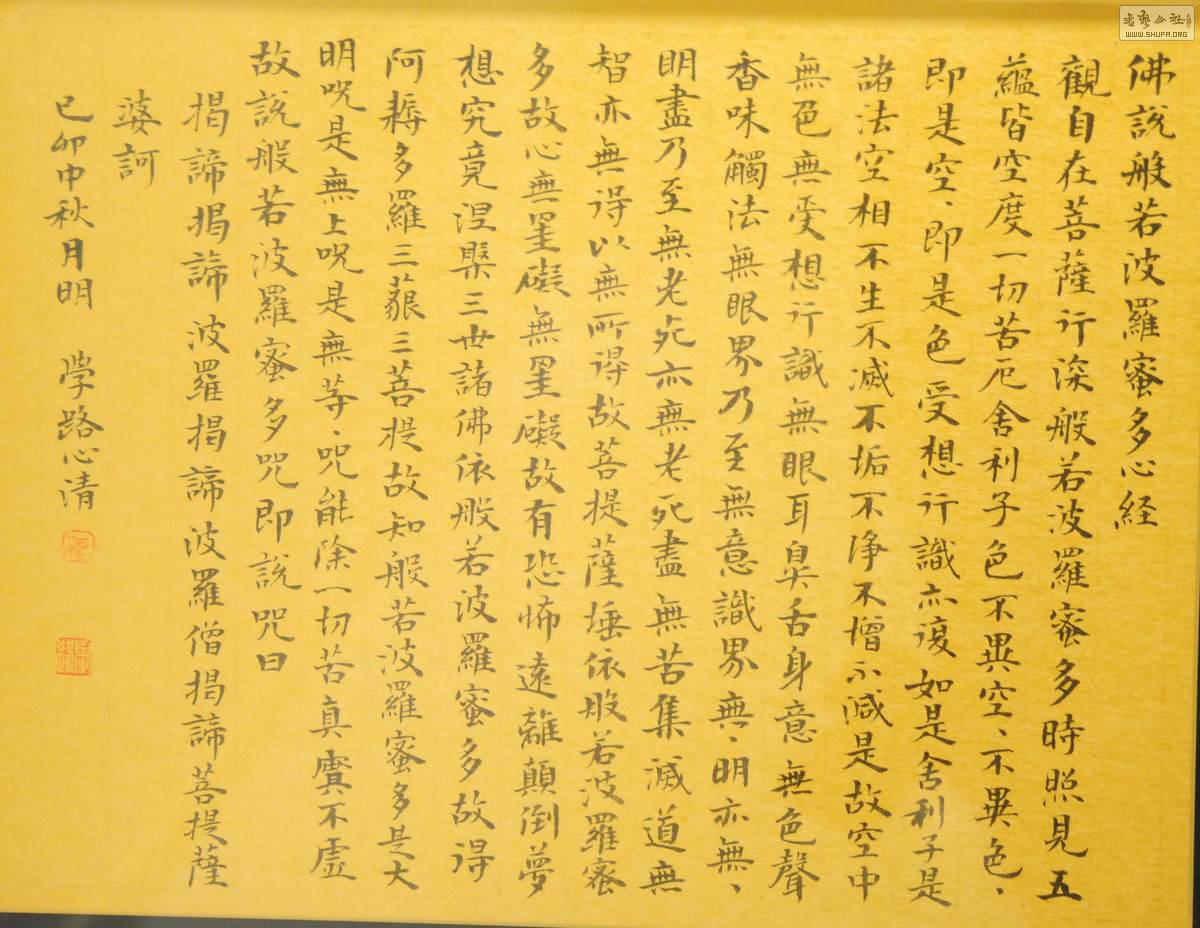 佛說般若波羅蜜多心経
觀自在菩薩行深般若波羅蜜多時照見五
蘊皆空度一切苦厄舍利子色不異空、不異色、
即是空、即是色受想行識亦復如是舍利子是
諸法空相不生不滅不垢不淨不增不減是故空中
無色無受想行識無眼耳鼻舌身意無色聲
香味觸法無眼界乃至無意識界無、明亦無、
明盡乃至無老死亦無老死盡無苦集滅道無
智亦無得以無所得故菩提薩埵依般若波羅蜜
多故心無罣礙無罣礙故有恐怖遠離顛倒夢
想究竟涅槃三世諸佛依般若波羅蜜多故得
阿耨多羅三藐三菩提故知般若波羅蜜多是大
明咒是無上咒是無等、咒能除一切苦真實不虛
故說般若波羅蜜多咒即說咒曰
揭諦揭諦波羅揭諦波羅僧揭諦菩提薩
婆訶
己卯中秋月明 学路心清
書藝公社
WWW.SHUFA.ORG